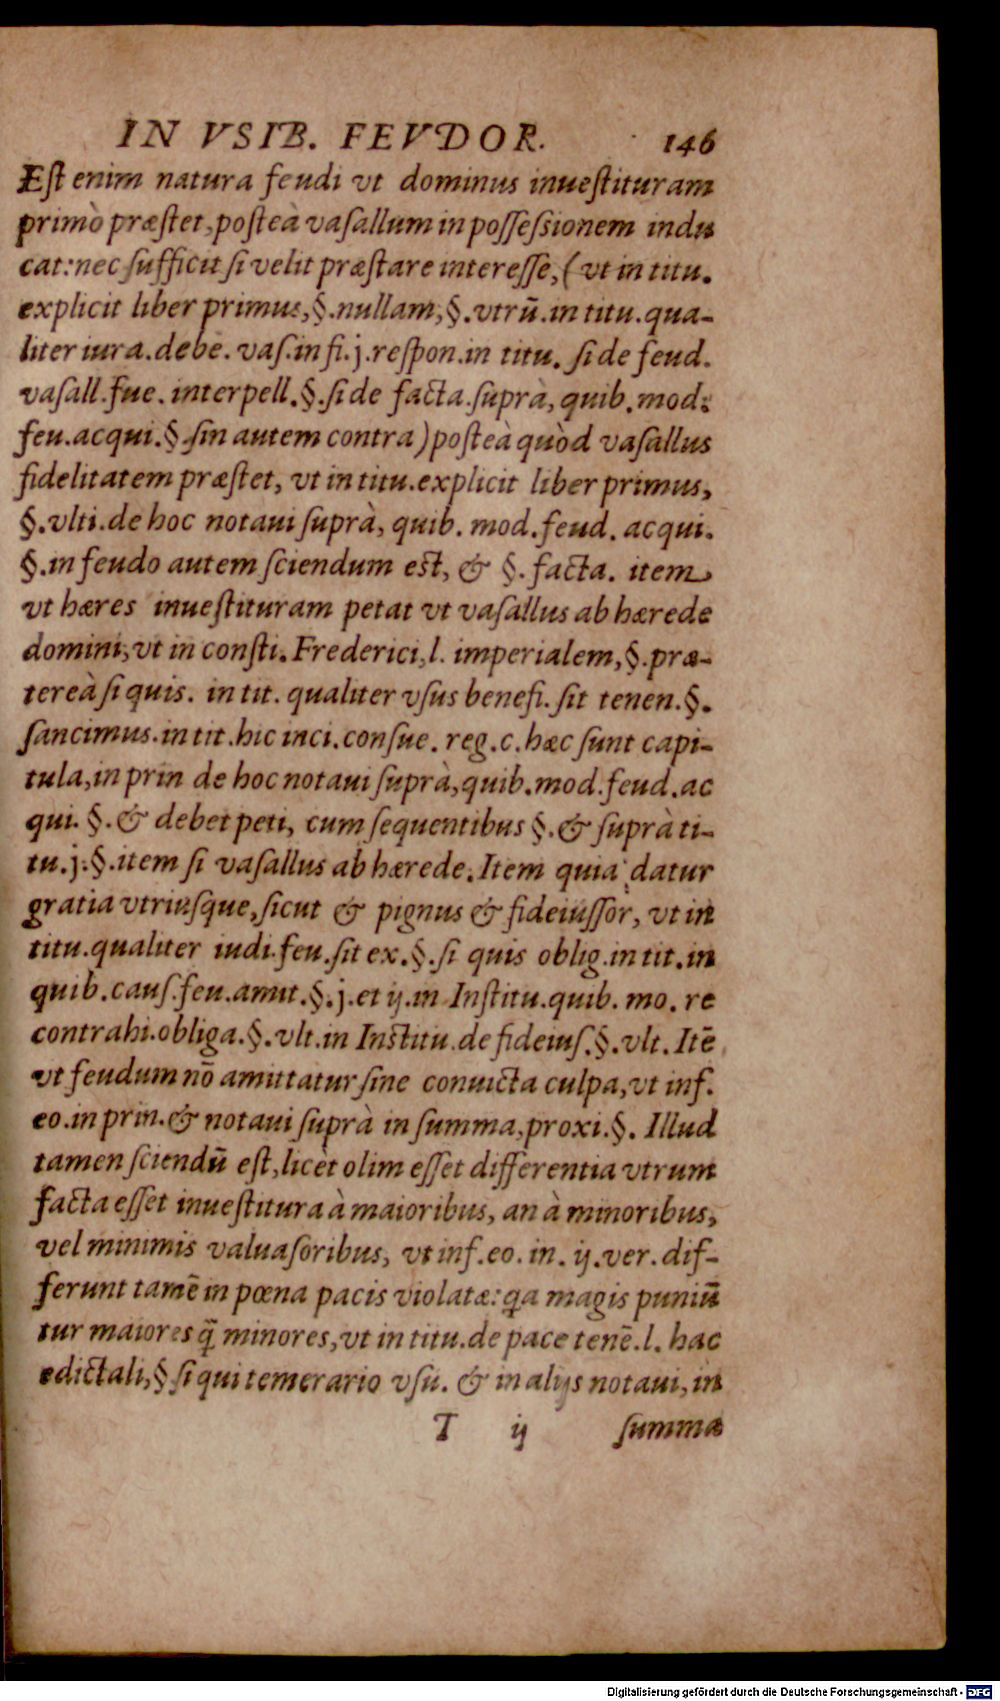 IN VSIB. FEVDOR. 146
Eſt enim natura feudi vt dominus inueſtituram
primò præſtet, poſteà vaſallum in poſſeſsionem indu
cat: nec ſufficit ſi velit præſtare intereſſe, (vt in titu.
explicit liber primus, §. nullam, §. vtrū. in titu. qua-
liter iura. debe. vaſ. in fi. j. reſpon. in titu. ſi de feud.
vaſall. fue. interpell. §. ſi de facta. ſuprà, quib. mod.
feu. acqui. §. ſin autem contra) poſteà quòd vaſallus
fidelitatem præſtet, vt in titu. explicit liber primus,
§. vlti. de hoc notaui ſuprà, quib. mod. feud. acqui.
§. in feudo autem ſciendum eſt, & §. facta. item
vt hæres inueſtituram petat vt vaſallus ab hærede
domini, vt in conſti. Frederici, l. imperialem, §. præ-
tereà ſi quis. in tit. qualiter vſus benefi. ſit tenen. §.
ſancimus. in tit. hic inci. conſue. reg. c. hæc ſunt capi-
tula, in prin de hoc notaui ſuprà, quib. mod. feud. ac
qui. §. & debet peti, cum ſequentibus §. & ſuprà ti-
tu. j. §. item ſi vaſallus ab hærede. Item quia datur
gratia vtriuſque, ſicut & pignus & fideiuſſor, vt in
titu. qualiter iudi. feu. ſit ex. §. ſi quis oblig. in tit. in
quib. cauſ. feu. amit. §. j. et ij. in Inſtitu. quib. mo. re
contrahi. obliga. §. vlt. in Inſtitu. de fideiuſ. §. vlt. Itē
vt feudum nō amittatur ſine conuicta culpa, vt inf.
eo. in prin. & notaui ſuprà in ſumma, proxi. §. Illud
tamen ſciendū eſt, licèt olim eſſet differentia vtrum
facta eſſet inueſtitura à maioribus, an à minoribus,
vel minimis valuaſoribus, vt inf. eo. in. ij. ver. dif-
ferunt tamē in pœna pacis violatæ: qa magis puniū
tur maiores q̃ minores, vt in titu. de pace tenē. l. hac
edictali, § ſi qui temerario vſu. & in alijs notaui, in
T ij ſumma
Digitalisierung gefördert durch die Deutsche Forschungsgemeinschaft - DFG